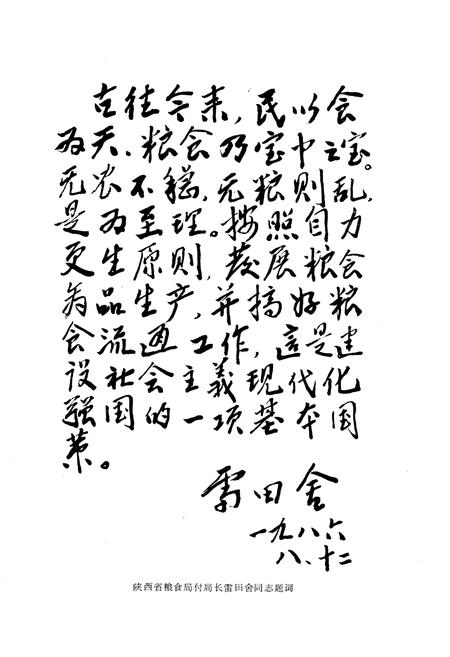 古往今来,民以食
为天、粮食乃宝中之宝。
无农不稳,无粮则乱,
是为至理。按照自力
更生原则,发展粮食
商品生产,并搞好粮
食流通工作,這是建
设社会主義现代化
强国的一项基本国
策。
雷田舍
一九八六
八、十二
陕西省粮食局付局长雷田舍同志题词